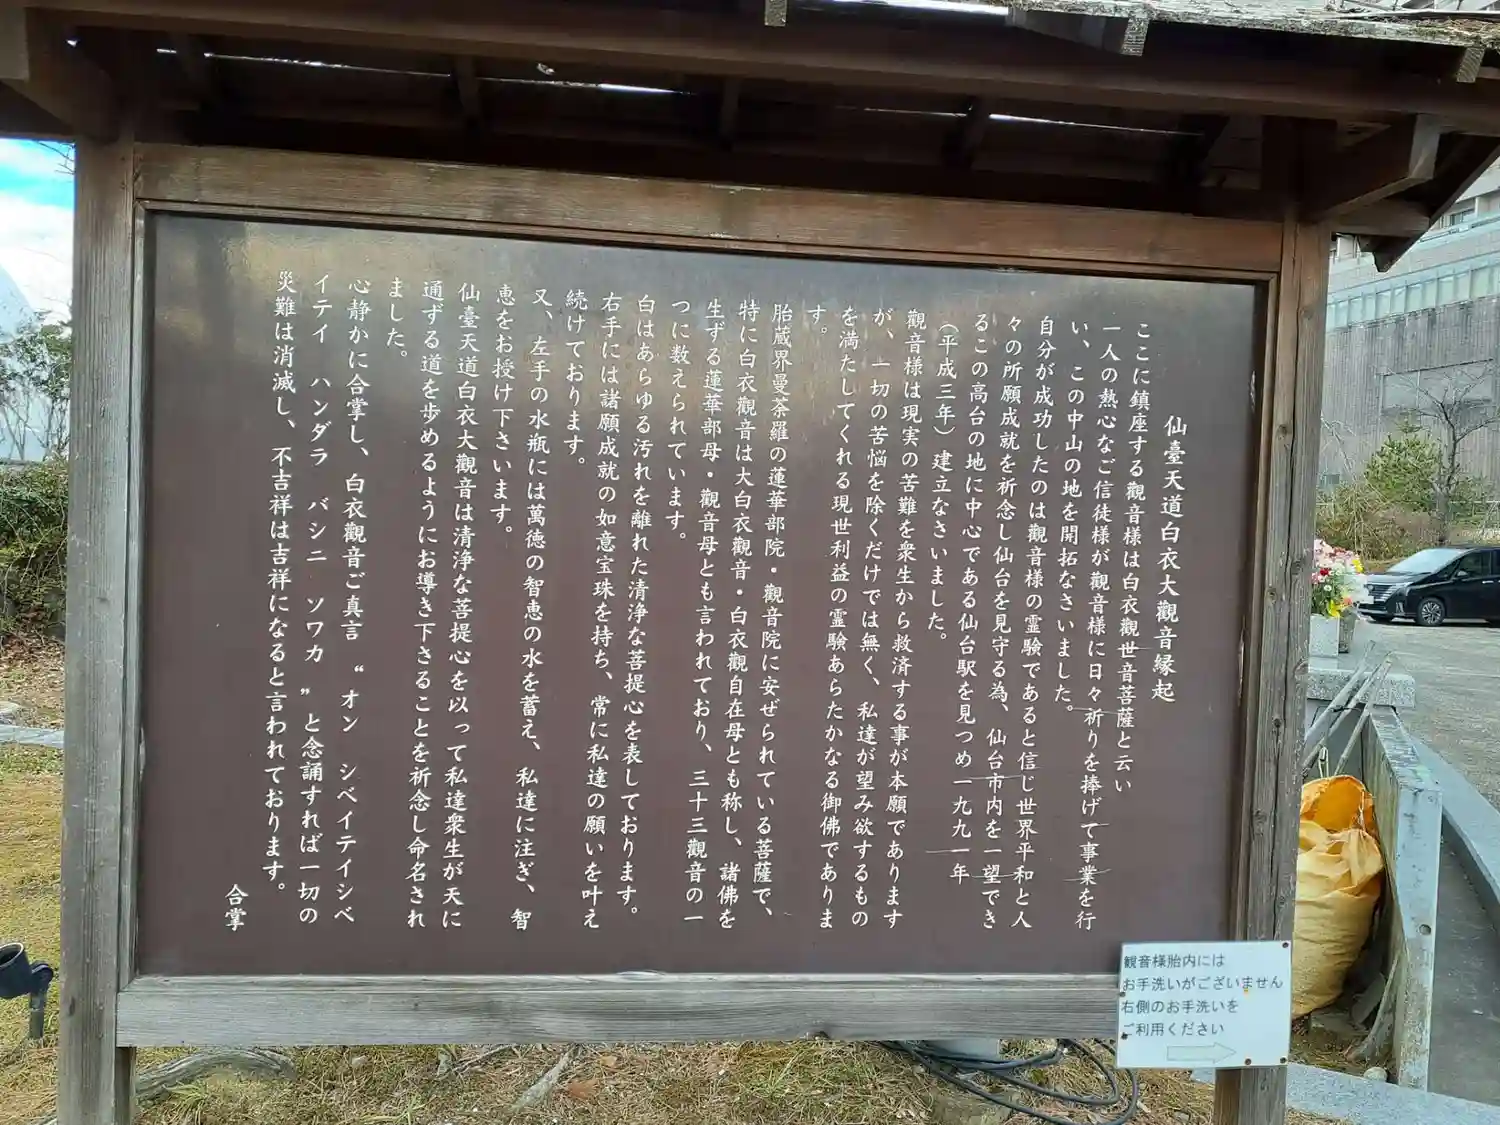 仙臺天道白衣大觀音縁起
ここに鎮座する觀音様は白衣觀世音菩薩と云い
一人の熱心なご信徒様が觀音様に日々祈りを捧げて事業を行
い、この中山の地を開拓なさいました。
自分が成功したのは觀音様の霊験であると信じ世界平和と人
々の所願成就を祈念し仙台を見守る為、仙台市内を一望でき
るこの高台の地に中心である仙台駅を見つめ一九九一年
（平成三年）建立なさいました。
觀音様は現実の苦難を衆生から救済する事が本願であります
が、一切の苦悩を除くだけでは無く、私達が望み欲するもの
を満たしてくれる現世利益の霊験あらたかなる御佛でありま
す。
胎蔵界曼荼羅の蓮華部院・觀音院に安ぜられている菩薩で、
特に白衣觀音は大白衣觀音・白衣觀自在母とも称し、諸佛を
生ずる蓮華部母・觀音母とも言われており、三十三觀音の一
つに数えられています。
白はあらゆる汚れを離れた清浄な菩提心を表しております。
右手には諸願成就の如意宝珠を持ち、常に私達の願いを叶え
続けております。
又、左手の水瓶には萬徳の智恵の水を蓄え、私達に注ぎ、智
恵をお授け下さいます。
仙臺天道白衣大觀音は清浄な菩提心を以って私達衆生が天に
通ずる道を歩めるようにお導き下さることを祈念し命名され
ました。
心静かに合掌し、白衣觀音ご真言 “オン シベイテイシベ
イテイ ハンダラ バシニ ソワカ”と念誦すれば一切の
災難は消滅し、不吉祥は吉祥になると言われております。
合掌
観音様胎内には
お手洗いがございません
右側のお手洗いを
ご利用ください